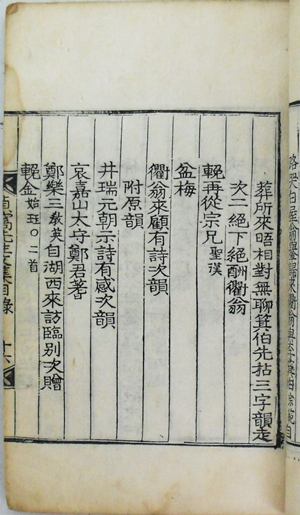 葬所來晤相對無聊箕伯先拈三字韻走
次二絕下絕酬衢翁
輓再從宗兄聖漢
盆梅
衢翁來顧有詩次韻
附原韻
井瑞元朝宗詩有感次韻
哀嘉山大守鄭君著
鄭樂三敎英自湖西來訪臨別次贈
輓金始㺬〇二首
目錄
十六